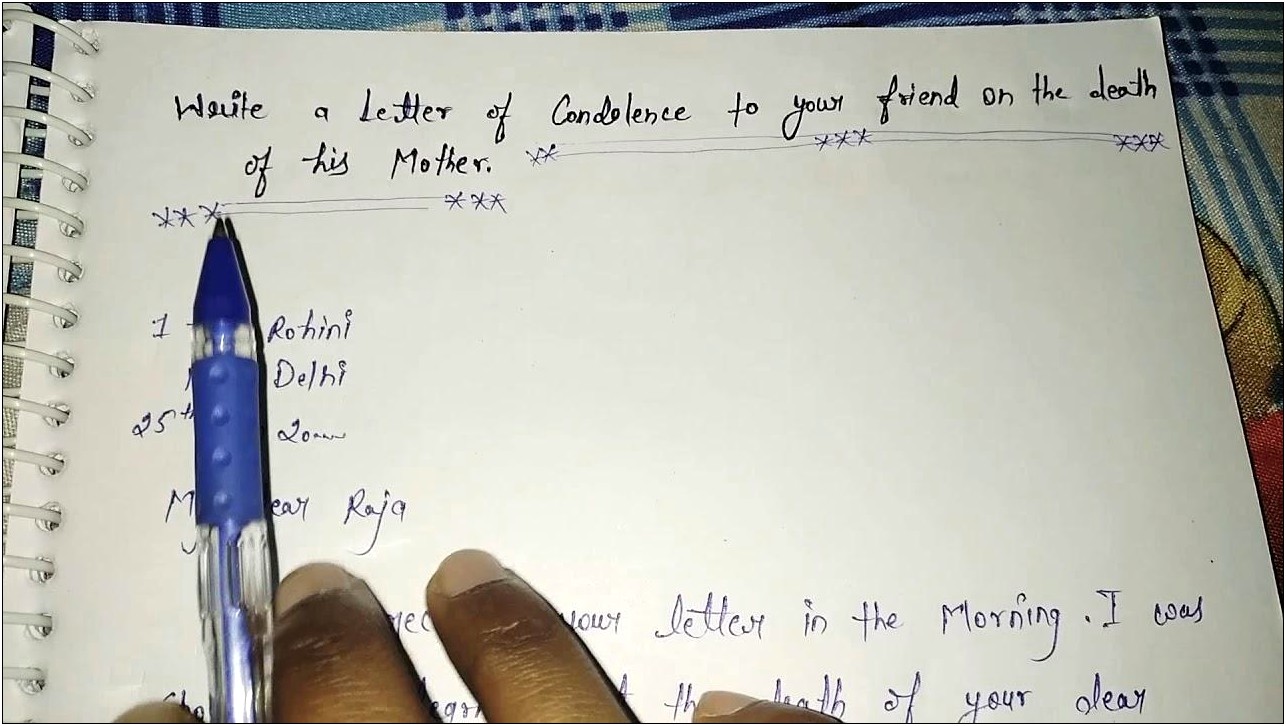 Write a Letter of Condolence to your friend on the death
of his Mother.
1 Rohini
Delhi
25th 20
Raja
your letter in the Morning. I was
death of your dear